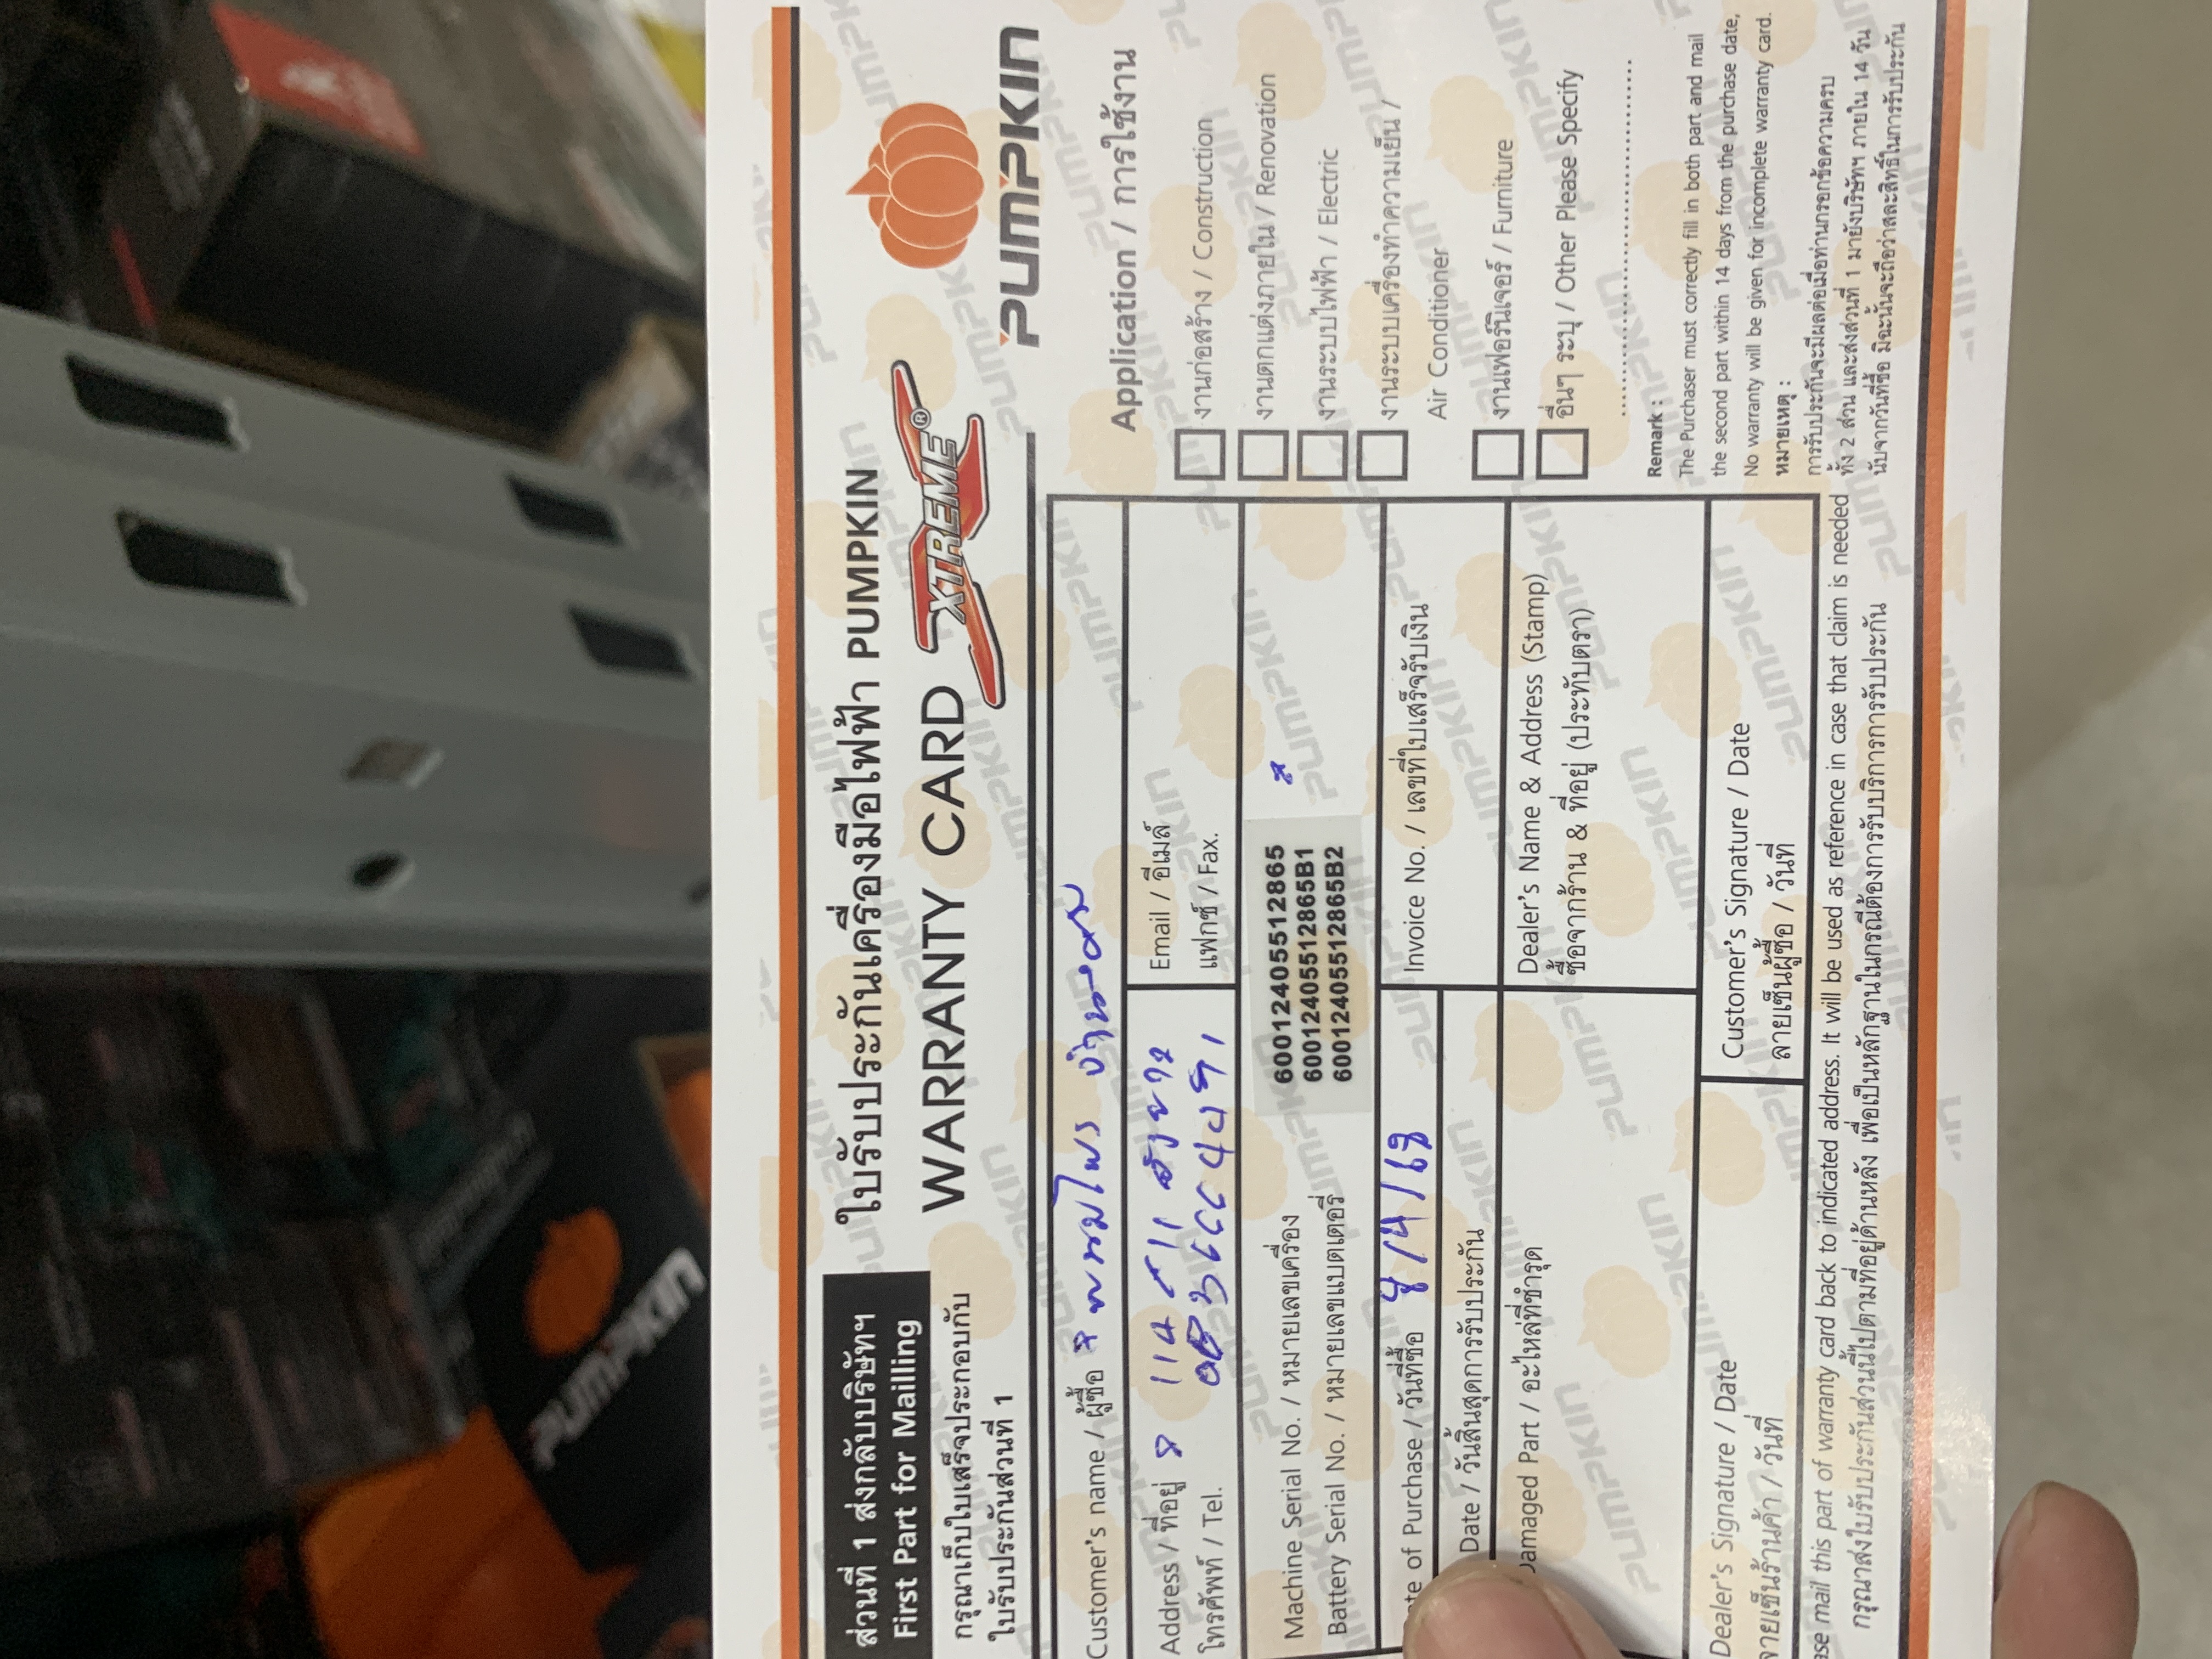 ส่วนที่ 1 ส่งกลับบริษัทฯ
First Part for Mailling
กรุณาเก็บใบเสร็จประกอบกับ
ใบรับประกันส่วนที่ 1
ใบรับประกันเครื่องมือไฟฟ้า PUMPKIN
WARRANTY CARD XTREME®
PUMPKIN
Customer's name / ผู้ซื้อ
Address / ที่อยู่ 114
โทรศัพท์ / Tel.
Email / อีเมล์
แฟกซ์ / Fax.
Machine Serial No. / หมายเลขเครื่อง
Battery Serial No. / หมายเลขแบตเตอรี่
60012405512865
60012405512865B1
60012405512865B2
of Purchase / วันที่ซื้อ
Date / วันสิ้นสุดการรับประกัน
Invoice No. / เลขที่ใบเสร็จรับเงิน
Damaged Part / อะไหล่ที่ชำรุด
Dealer's Name & Address (Stamp)
ซื้อจากร้าน & ที่อยู่ (ประทับตรา)
Dealer's Signature / Date
ลายเซ็นร้านค้า / วันที่
Customer's Signature / Date
ลายเซ็นผู้ซื้อ / วันที่
mail this part of warranty card back to indicated address. It will be used as reference in case that claim is needed
กรุณาส่งใบรับประกันส่วนนี้ไปตามที่อยู่ด้านหลัง เพื่อเป็นหลักฐานในกรณีต้องการรับบริการการรับประกัน
Application / การใช้งาน
งานก่อสร้าง / Construction
งานตกแต่งภายใน / Renovation
งานระบบไฟฟ้า / Electric
งานระบบเครื่องทำความเย็น /
Air Conditioner
งานเฟอร์นิเจอร์ / Furniture
อื่นๆ ระบุ / Other Please Specify
Remark :
The Purchaser must correctly fill in both part and mail
the second part within 14 days from the purchase date,
No warranty will be given for incomplete warranty card.
หมายเหตุ :
การรับประกันจะมีผลต่อเมื่อท่านกรอกข้อความครบ
ทั้ง 2 ส่วน และส่งส่วนที่ 1 มายังบริษัทฯ ภายใน 14 วัน
นับจากวันที่ซื้อ มิฉะนั้นจะถือว่าสละสิทธิ์ในการรับประกัน
PUMPKIN